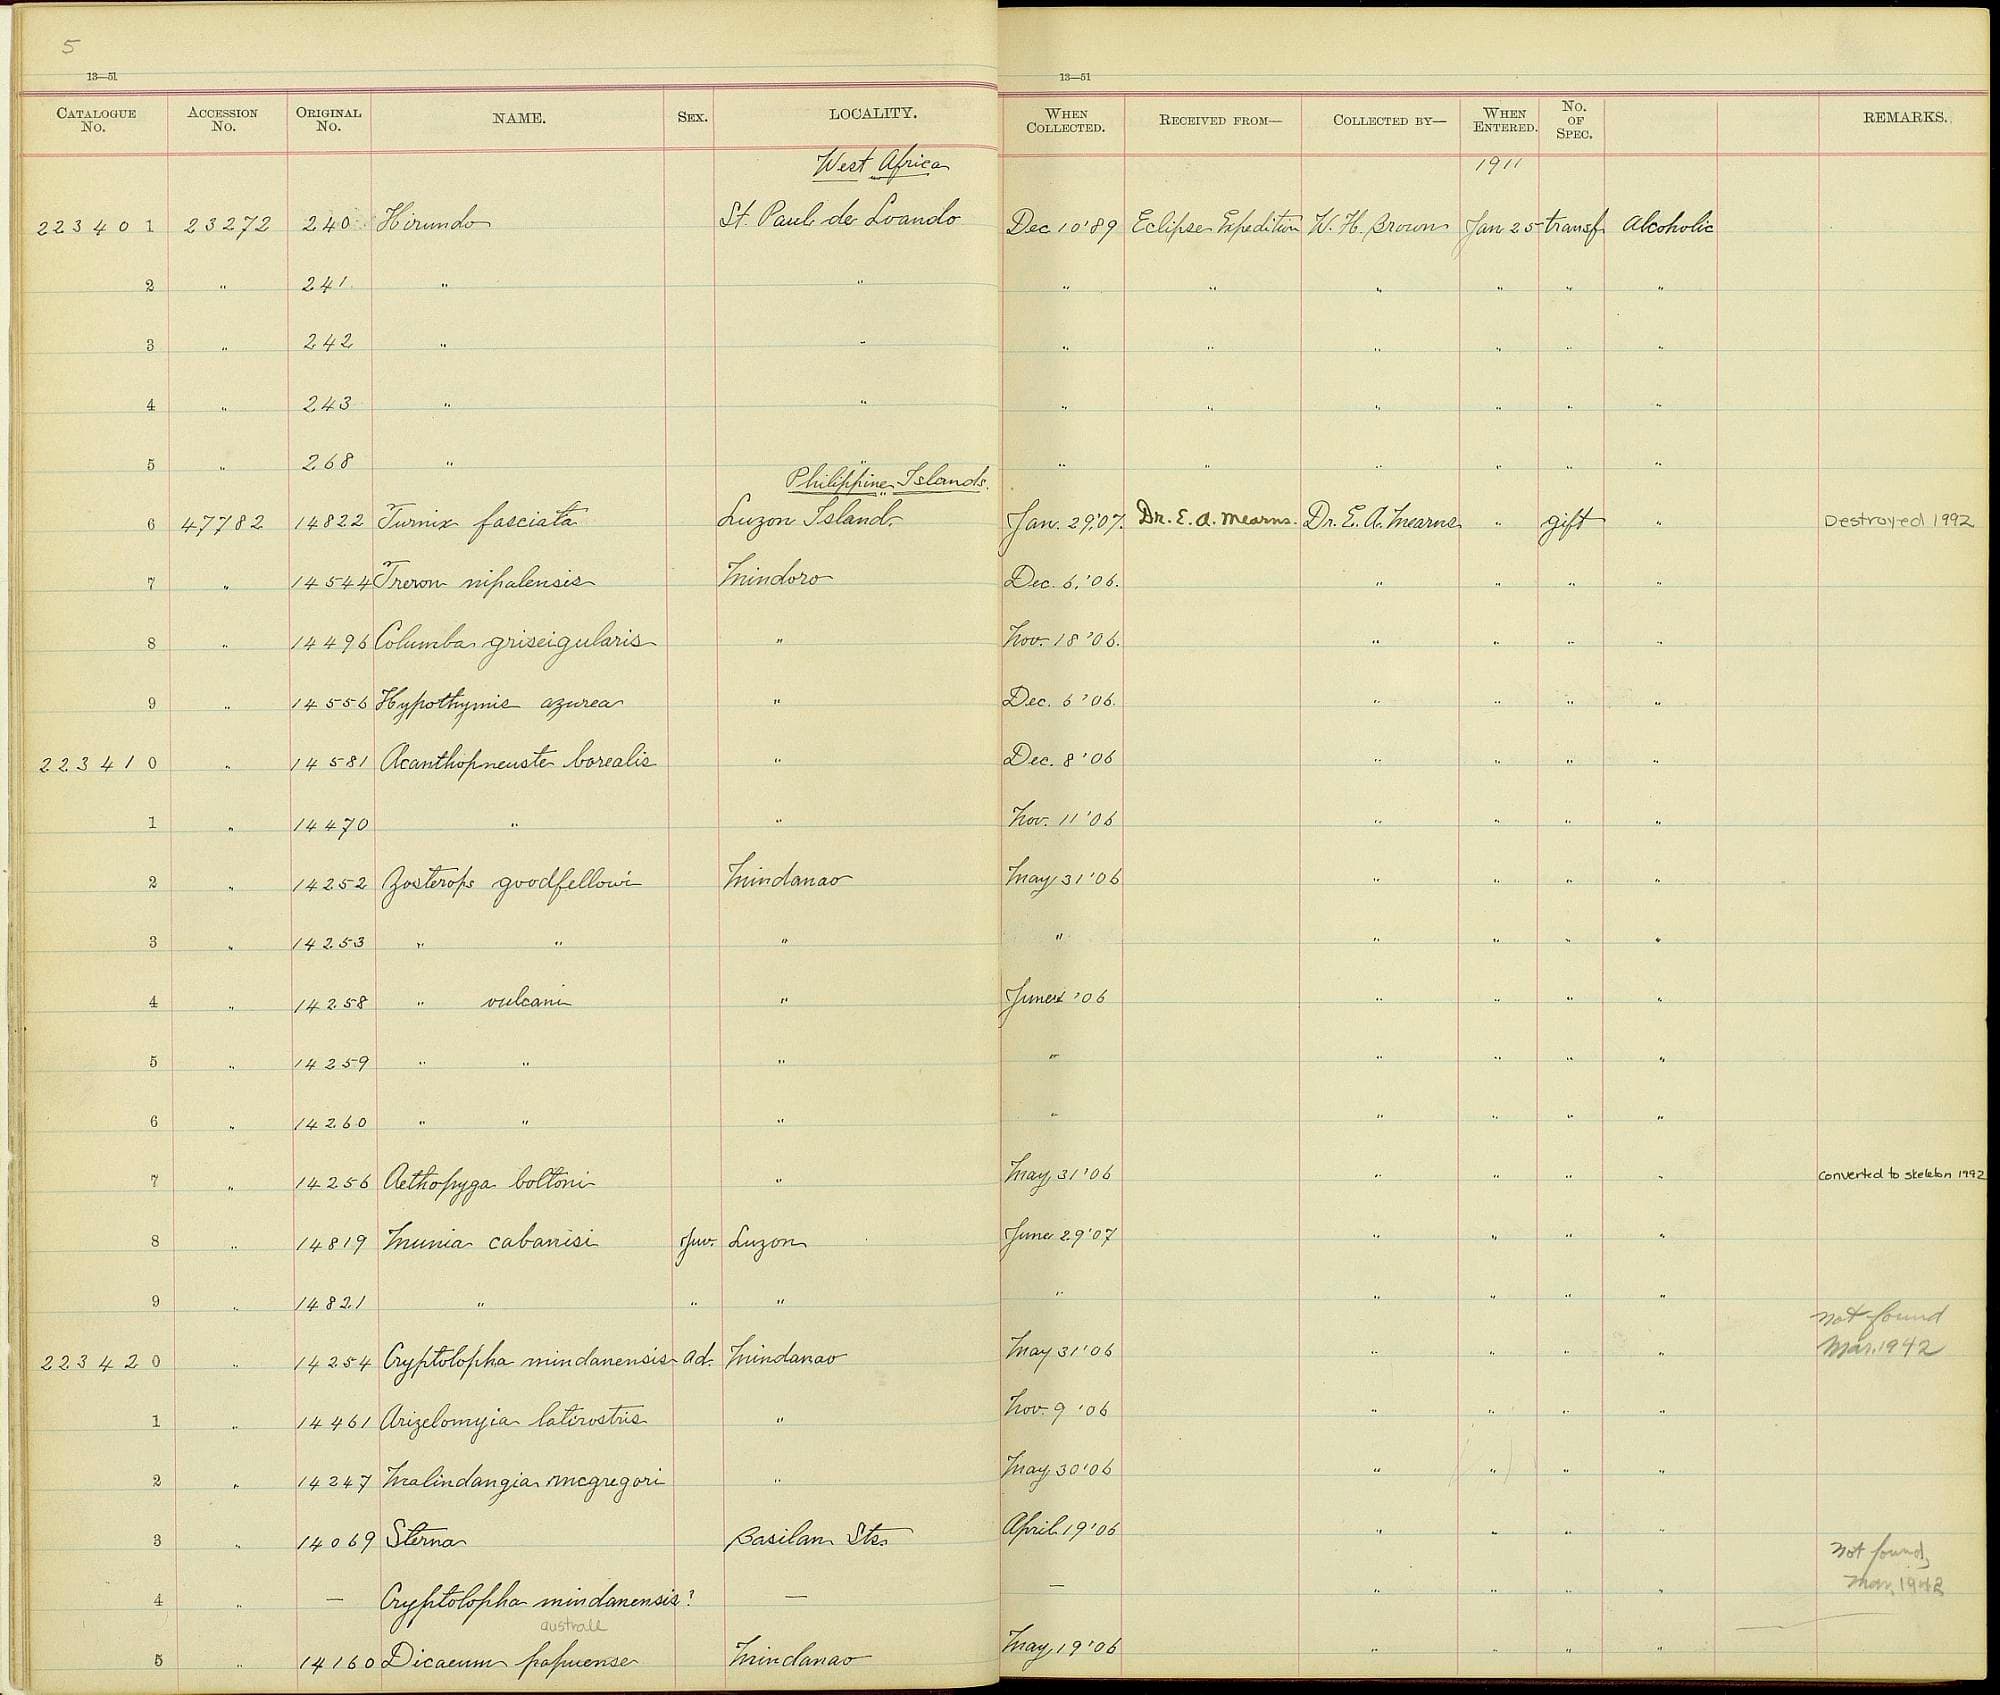 5
13—51 13—51
CATALOGUE No. ACCESSION No. ORIGINAL No. NAME. SEX. LOCALITY. WHEN COLLECTED. RECEIVED FROM— COLLECTED BY— WHEN ENTERED. No. OF SPEC. REMARKS.
West Africa 1911
223401 23272 240 Hirundo St. Paul de Loando Dec 10 '89 Eclipse Expedition W. H. Brown Jan 25 transf Alcoholic
2 " 241 " " " " " " " "
3 " 242 " " " " " " " "
4 " 243 " " " " " " " "
5 " 268 " " " " " " " "
Philippine Islands.
6 47782 14822 Turnix fasciata Luzon Island. Jan. 29, '07. Dr. E. A. Mearns. Dr. E. A. Mearns " gift " Destroyed 1992
7 " 14544 Treron nipalensis Mindoro Dec. 6, '06. " " " "
8 " 14496 Columba griseigularis " Nov. 18 '06. " " " "
9 " 14556 Hypothymis azurea " Dec. 6 '06. " " " "
223410 " 14581 Acanthopneuste borealis " Dec. 8 '06 " " " "
1 " 14470 " " Nov. 11 '06 " " " "
2 " 14252 Zosterops goodfellowi Mindanao May 31 '06 " " " "
3 " 14253 " " " " " " " "
4 " 14258 " vulcani " June '06 " " " "
5 " 14259 " " " " " " " "
6 " 14260 " " " " " " " "
7 " 14256 Aethopyga boltoni " May 31 '06 " " " " converted to skeleton 1992
8 " 14819 Munia cabanisi Juv. Luzon June 29 '07 " " " "
9 " 14821 " " " " " " " "
not found
223420 " 14254 Cryptolopha mindanensis ad. Mindanao May 31 '06 " " " " Mar. 1942
1 " 14461 Arizelomyia latirostris " Nov. 9 '06 " " " "
2 " 14247 Malindangia mcgregori " May 30 '06 " " " "
3 " 14069 Sterna Basilan Sts. April 19 '06 " " " "
not found,
4 " — Cryptolopha mindanensis? — — " " " " Mar, 1942
australe
5 " 14160 Dicaeum papuense Mindanao May 19 '06 " " " "